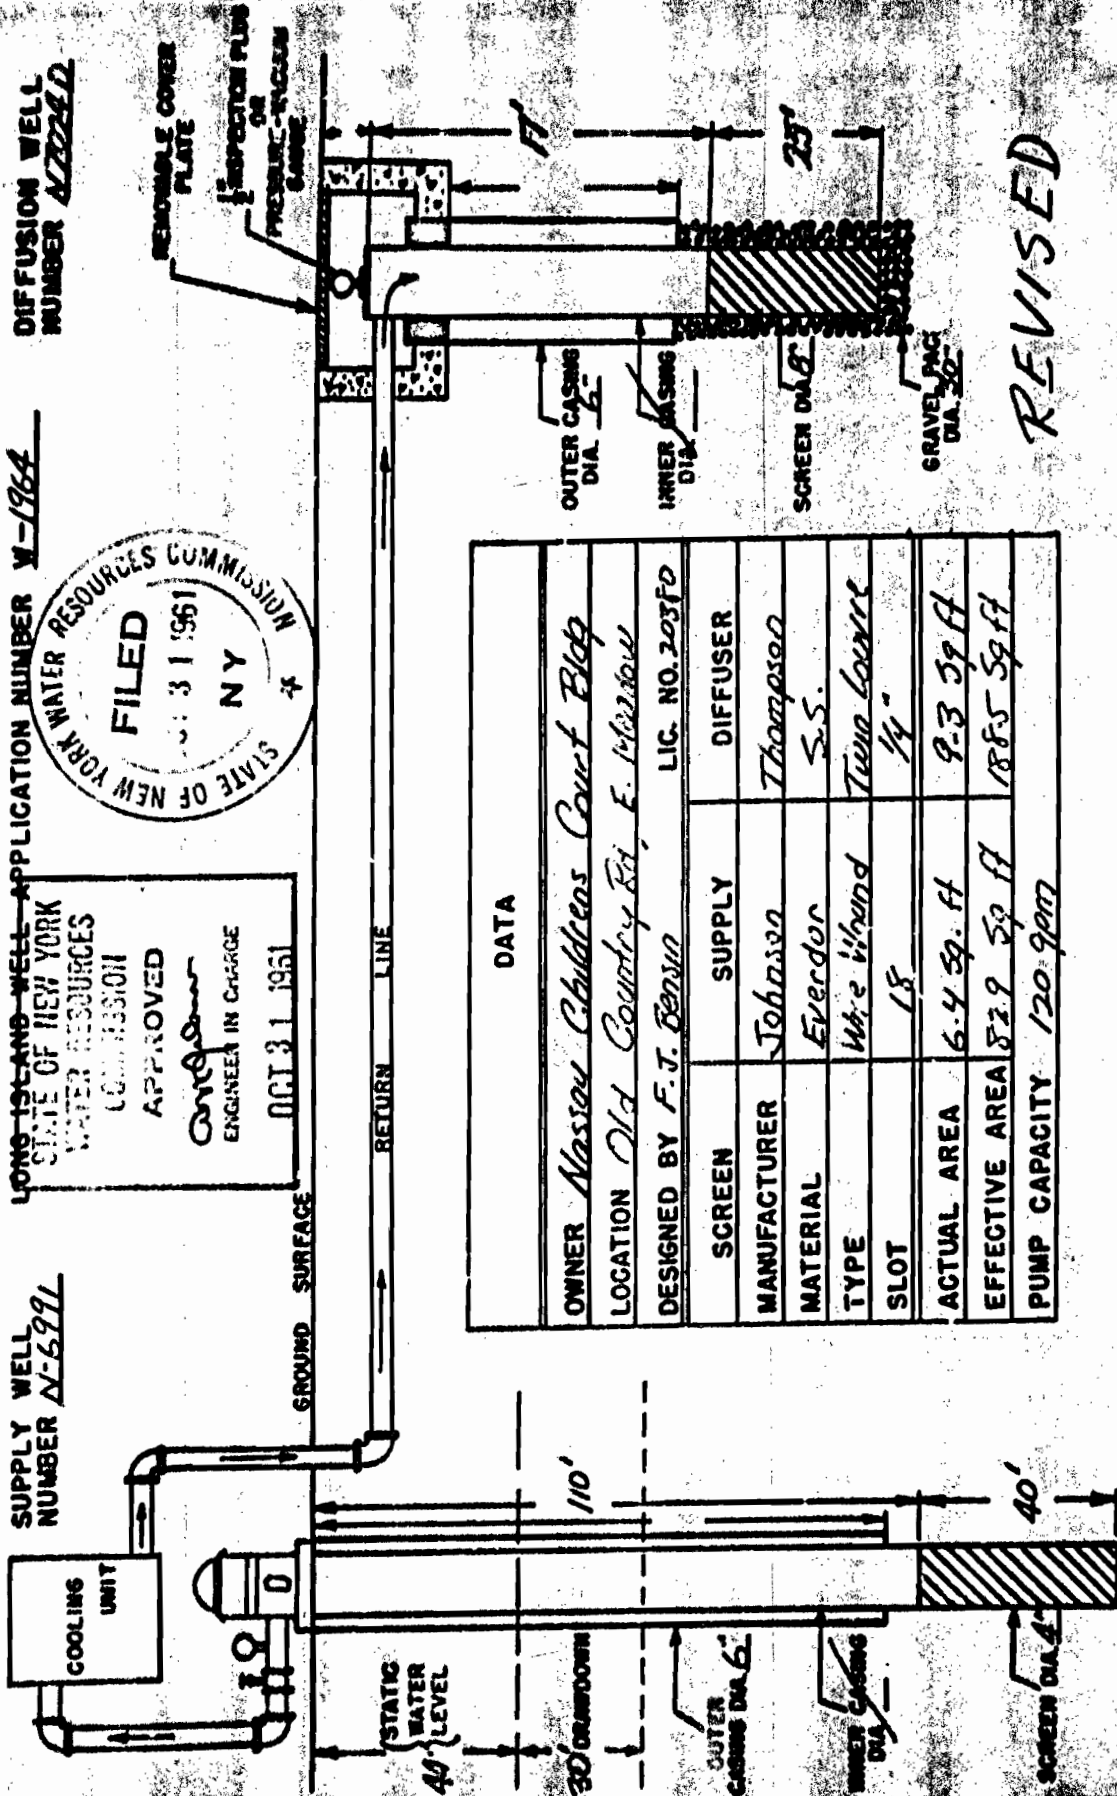 SUPPLY WELL
NUMBER N-6991
LONG ISLAND WELL APPLICATION NUMBER W-1964
DIFFUSION WELL
NUMBER N7024D
STATE OF NEW YORK
WATER RESOURCES
COMMISSION
APPROVED
ENGINEER IN CHARGE
OCT 31 1961
STATE OF NEW YORK WATER RESOURCES COMMISSION
FILED
31 1961
N Y
COOLING
UNIT
GROUND SURFACE
RETURN LINE
REMOVABLE COVER
PLATE
INSPECTION PLUG
OR
PRESSURE-VACUUM
GAUGE
STATIC
WATER
LEVEL
40'
30' DRAWDOWN
110'
40'
OUTER
CASING DIA. 6"
INNER CASING
DIA.
SCREEN DIA. 4"
OUTER CASING
DIA. 6"
INNER CASING
DIA.
SCREEN DIA. 8"
GRAVEL PAC
DIA. 30"
25'
DATA
OWNER Nassau Childrens Court Bldg
LOCATION Old Country Rd, E. Meadow
DESIGNED BY F.J. Bensin LIC. NO. 20380
SCREEN SUPPLY DIFFUSER
MANUFACTURER Johnson Thompson
MATERIAL Everdur S.S.
TYPE Wire Wound Tuna Louvre
SLOT 18 1/4"
ACTUAL AREA 6.4 sq. ft 9.3 sq ft
EFFECTIVE AREA 82.9 sq ft 188.5 sq ft
PUMP CAPACITY 120 gpm
REVISED